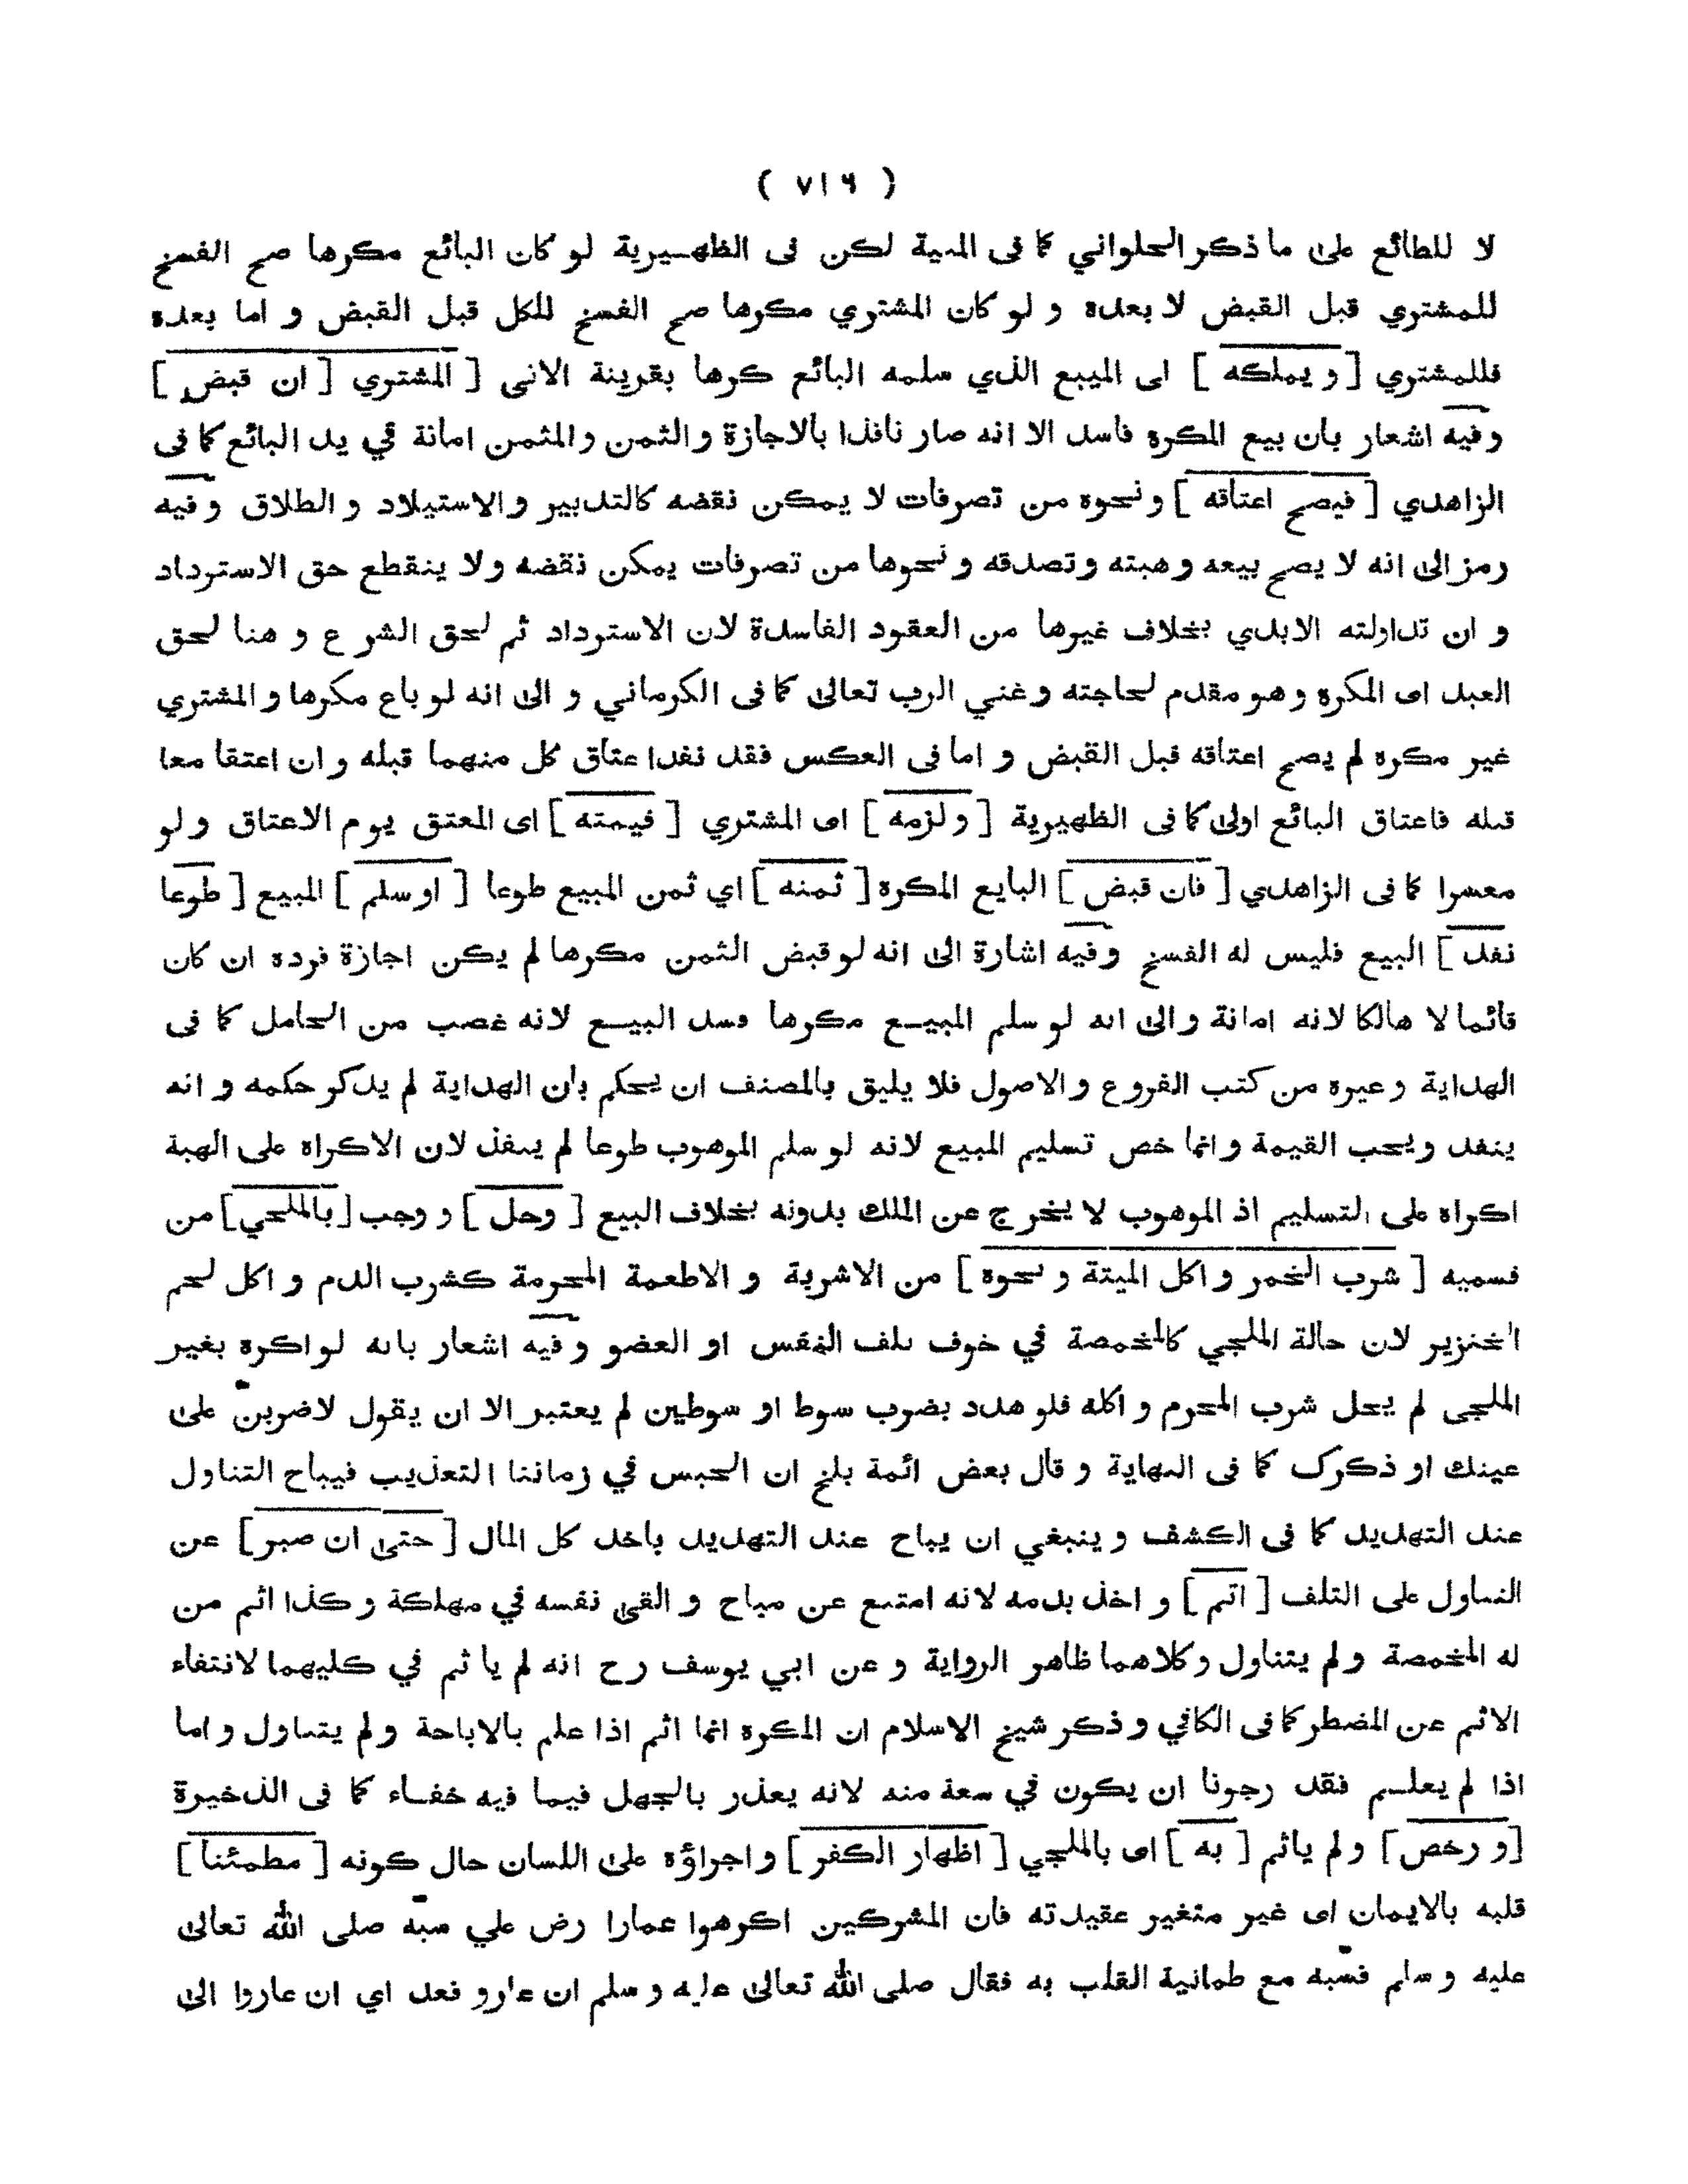 ( ٧١٦ )
لا للطائع على ما ذكر الحلواني كما فى المنية لكن فى الظهيرية لو كان البائع مكرها صح الفسخ
للمشتري قبل القبض لا بعده و لو كان المشتري مكرها صح الفسخ للكل قبل القبض و اما بعده
فللمشتري [ و يملكه ] اى المبيع الذي سلمه البائع كرها بقرينة الاتى [ المشتري [ ان قبض ]
وفيه اشعار بان بيع المكره فاسد الا انه صار نافذا بالاجازة و الثمن و المثمن امانة في يد البائع كما فى
الزاهدي [ فيصح اعتاقه ] و نحوه من تصرفات لا يمكن نقضه كالتدبير و الاستيلاد و الطلاق و فيه
رمز الى انه لا يصح بيعه و هبته و تصدقه و نحوها من تصرفات يمكن نقضه و لا ينقطع حق الاسترداد
و ان تداولته الايدي بخلاف غيرها من العقود الفاسدة لان الاسترداد ثم لحق الشرع و هنا لحق
العبد اى المكره و هو مقدم لحاجته و غني الرب تعالى كما فى الكرماني و الى انه لو باع مكرها و المشتري
غير مكره لم يصح اعتاقه قبل القبض و اما فى العكس فقد نفذ اعتاق كل منهما قبله و ان اعتقا معا
قبله فاعتاق البائع اولى كما فى الظهيرية [ و لزمه ] اى المشتري [ قيمته ] اى المعتق يوم الاعتاق و لو
معسرا كما فى الزاهدي [ فان قبض ] البايع المكره [ ثمنه ] اي ثمن المبيع طوعا [ او سلم ] المبيع [ طوعا
نفذ ] البيع فليس له الفسخ و فيه اشارة الى انه لو قبض الثمن مكرها لم يكن اجازة فرده ان كان
قائما لا هالكا لانه امانة و الى انه لو سلم المبيع مكرها فسد البيع لانه غصب من الحامل كما فى
الهداية و غيره من كتب الفروع و الاصول فلا يليق بالمصنف ان يحكم بان الهداية لم يذكر حكمه و انه
ينفذ و يجب القيمة و انما خص تسليم المبيع لانه لو سلم الموهوب طوعا لم ينفذ لان الاكراه على الهبة
اكراه على التسليم اذ الموهوب لا يخرج عن الملك بدونه بخلاف البيع [ وحل ] و وجب [ بالملجي ] من
قسميه [ شرب الخمر و اكل الميتة و نحوه ] من الاشربة و الاطعمة المحرمة كشرب الدم و اكل لحم
الخنزير لان حالة الملجي كالمخمصة في خوف تلف النفس او العضو و فيه اشعار بانه لو اكره بغير
الملجى لم يحل شرب المحرم و اكله فلو هدد بضرب سوط او سوطين لم يعتبر الا ان يقول لاضربنّ على
عينك او ذكرك كما فى النهاية و قال بعض ائمة بلخ ان الحبس في زماننا التعذيب فيباح التناول
عند التهديد كما فى الكشف و ينبغي ان يباح عند التهديد باخذ كل المال [ حتى ان صبر ] عن
التناول على التلف [ اثم ] و اخذ بدمه لانه امتنع عن مباح و القى نفسه في مهلكة و كذا اثم من
له المخمصة و لم يتناول و كلاهما ظاهر الرواية و عن ابي يوسف رح انه لم ياثم في كليهما لانتفاء
الاثم عن المضطر كما فى الكافي و ذكر شيخ الاسلام ان المكره انما اثم اذا علم بالاباحة و لم يتناول و اما
اذا لم يعلم فقد رجونا ان يكون في سعة منه لانه يعذر بالجهل فيما فيه خفاء كما فى الذخيرة
[ و رخص ] و لم ياثم [ به ] اى بالملجي [ اظهار الكفر ] و اجراؤه على اللسان حال كونه [ مطمئنا ]
قلبه بالايمان اى غير متغير عقيدته فان المشركين اكرهوا عمارا رض علي سبّه صلى الله تعالى
عليه و سلم فسّبه مع طمانية القلب به فقال صلى الله تعالى عليه و سلم ان عارو فعد اي ان عاروا الى